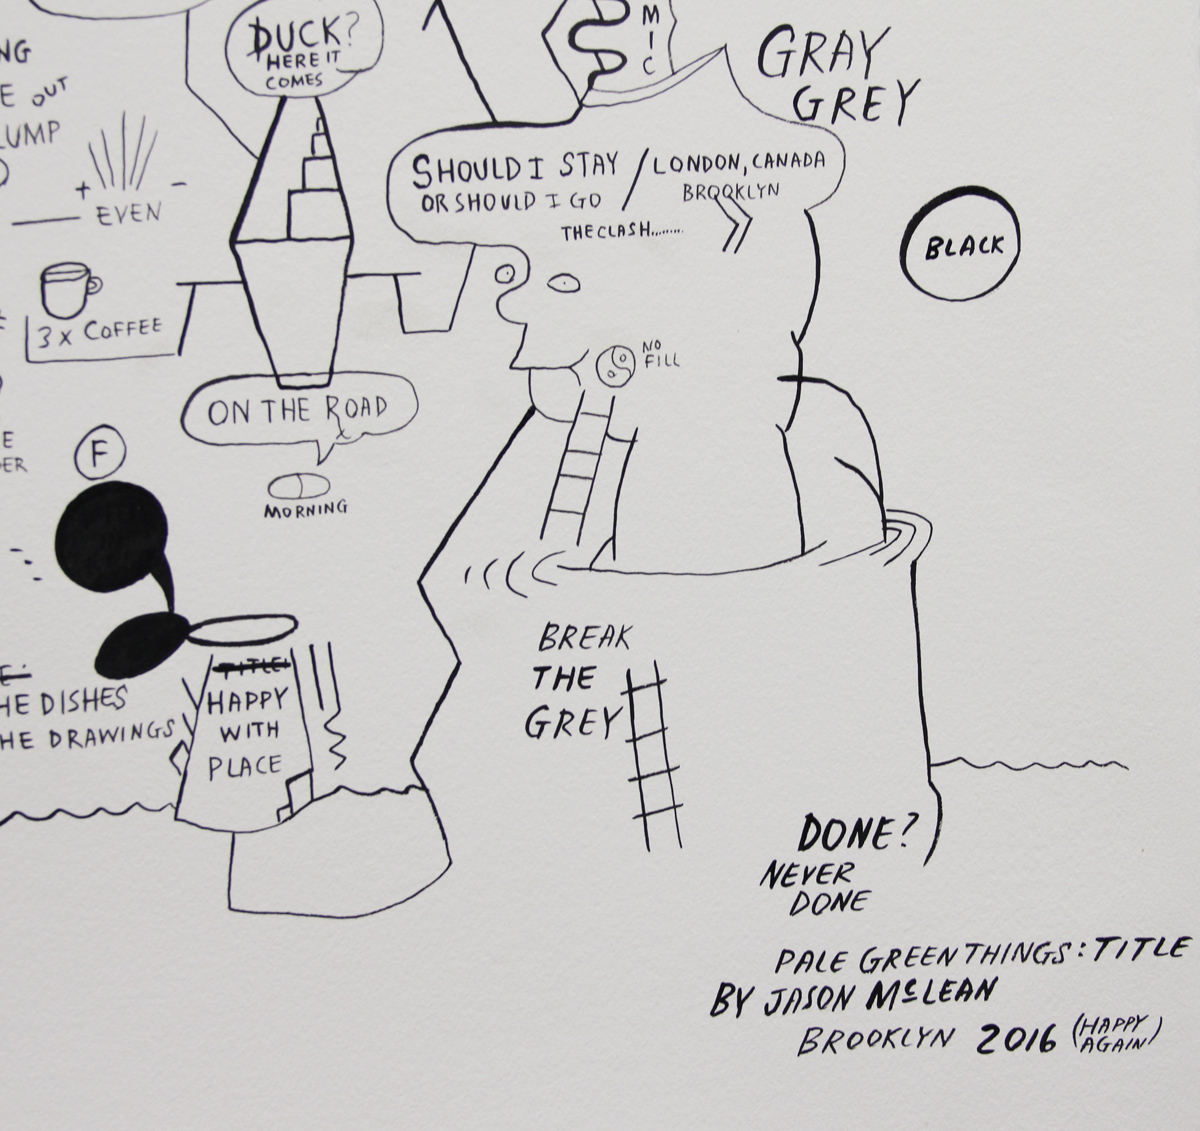 NG
E OUT
LUMP
+ —
EVEN
3 X COFFEE
E
ER
F
DUCK?
HERE IT
COMES
ON THE ROAD
MORNING
MIC
GRAY
GREY
SHOULD I STAY / LONDON, CANADA
OR SHOULD I GO BROOKLYN
THE CLASH........
BLACK
NO
FILL
TITLE:
HAPPY
WITH
PLACE
HE DISHES
HE DRAWINGS
BREAK
THE
GREY
DONE?
NEVER
DONE
PALE GREEN THINGS: TITLE
BY JASON McLEAN
BROOKLYN 2016 (HAPPY
AGAIN)